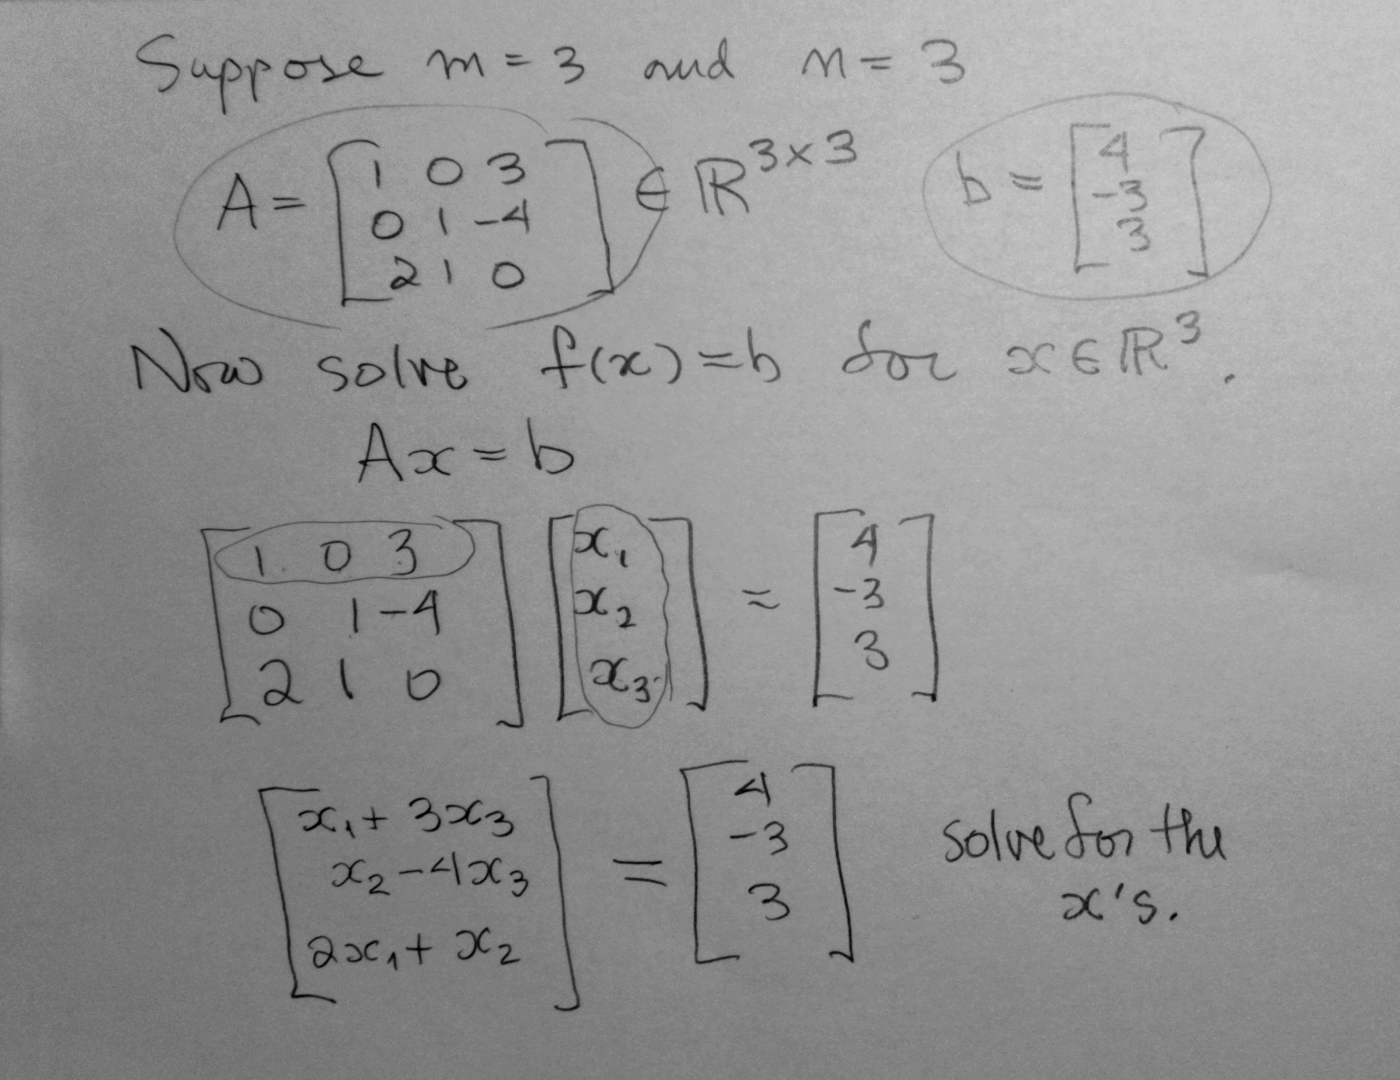 Suppose m = 3 and n = 3
A = [1 0 3; 0 1 -4; 2 1 0] ∈ ℝ^{3×3} b = [4; -3; 3]
Now solve f(x) = b for x ∈ ℝ^3.
Ax = b
[1 0 3; 0 1 -4; 2 1 0] [x_1; x_2; x_3] = [4; -3; 3]
[x_1 + 3x_3; x_2 - 4x_3; 2x_1 + x_2] = [4; -3; 3] solve for the
x's.